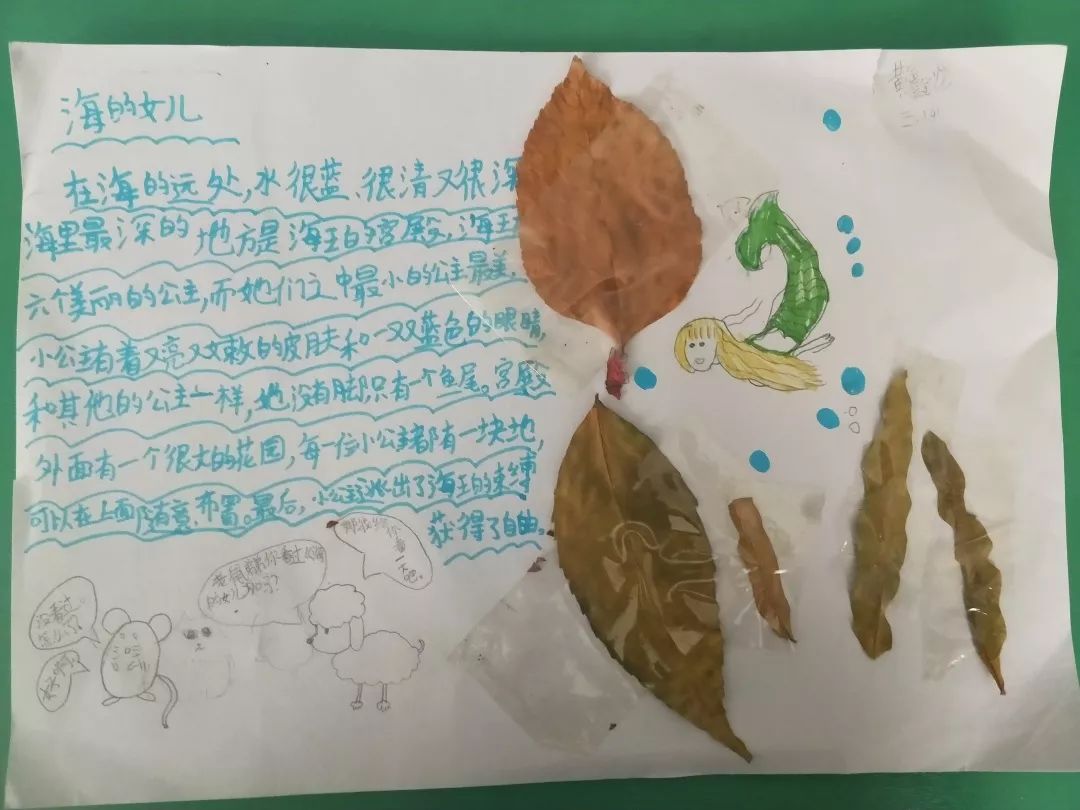 海的女儿
在海的远处,水很蓝、很清又很深
海里最深的地方是海王的宫殿,海王
六个美丽的公主,而她们之中最小的公主最美,
小公主有着又亮又嫩的皮肤和一双蓝色的眼睛,
和其他的公主一样,她没有脚只有一个鱼尾。宫殿
外面有一个很大的花园,每一位小公主都有一块地,
可以在上面随意布置。最后,小公主逃出了海王的束缚
获得了自由。
没看过。
怎么了?
好啊!